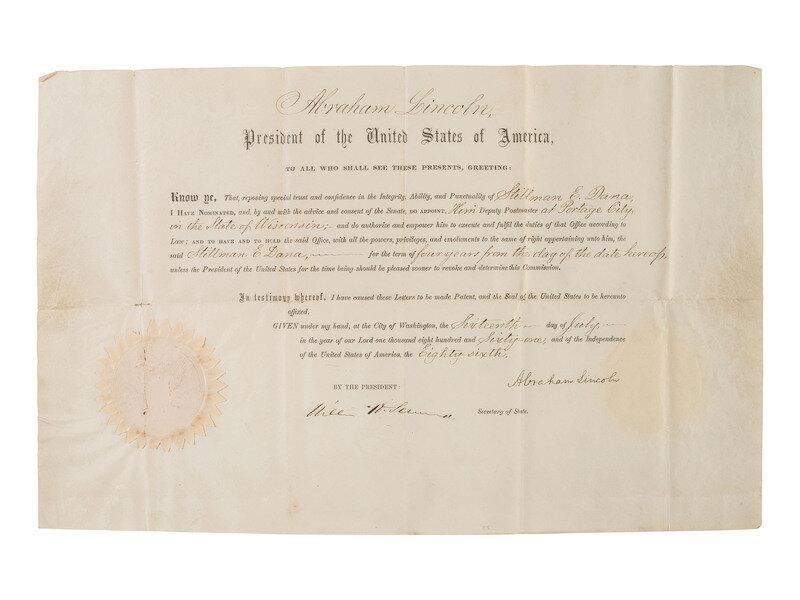 Abraham Lincoln,
President of the United States of America,
TO ALL WHO SHALL SEE THESE PRESENTS, GREETING:
Know ye, That, reposing special trust and confidence in the Integrity, Ability, and Punctuality of Stillman E. Dana,
I HAVE NOMINATED, and, by and with the advice and consent of the Senate, DO APPOINT, Him Deputy Postmaster at Portage City,
in the State of Wisconsin; and do authorize and empower him to execute and fulfil the duties of that Office according to
Law; AND TO HAVE AND TO HOLD the said Office, with all the powers, privileges, and emoluments to the same of right appertaining unto him, the
said Stillman E. Dana, for the term of four years from the day of the date hereof,
unless the President of the United States for the time being should be pleased sooner to revoke and determine this Commission.
In testimony whereof, I have caused these Letters to be made Patent, and the Seal of the United States to be hereunto
affixed.
GIVEN under my hand, at the City of Washington, the Sixteenth day of July,
in the year of our Lord one thousand eight hundred and Sixty one; and of the Independence
of the United States of America, the Eighty sixth.
Abraham Lincoln
BY THE PRESIDENT:
William H. Seward Secretary of State.